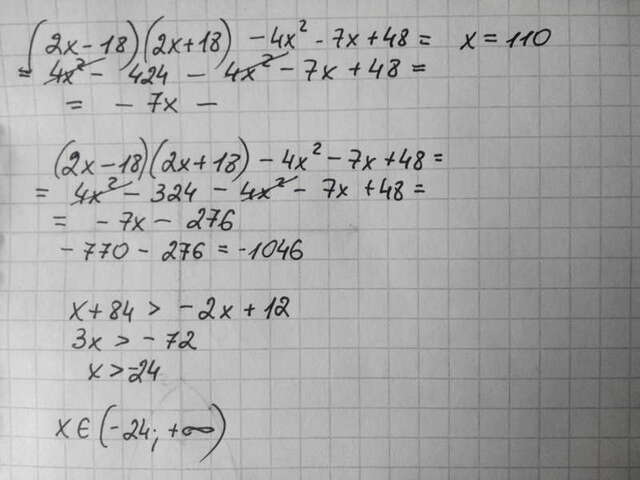 (2x-18)(2x+18) -4x² - 7x+48= x=110
= 4x² - 424 - 4x² - 7x +48 =
= - 7x -
(2x-18)(2x+18) - 4x² - 7x+48 =
= 4x² - 324 - 4x² - 7x +48 =
= - 7x - 276
- 770 - 276 = -1046
x+84 > - 2x + 12
3x > - 72
x > -24
x ∈ (-24; +∞)